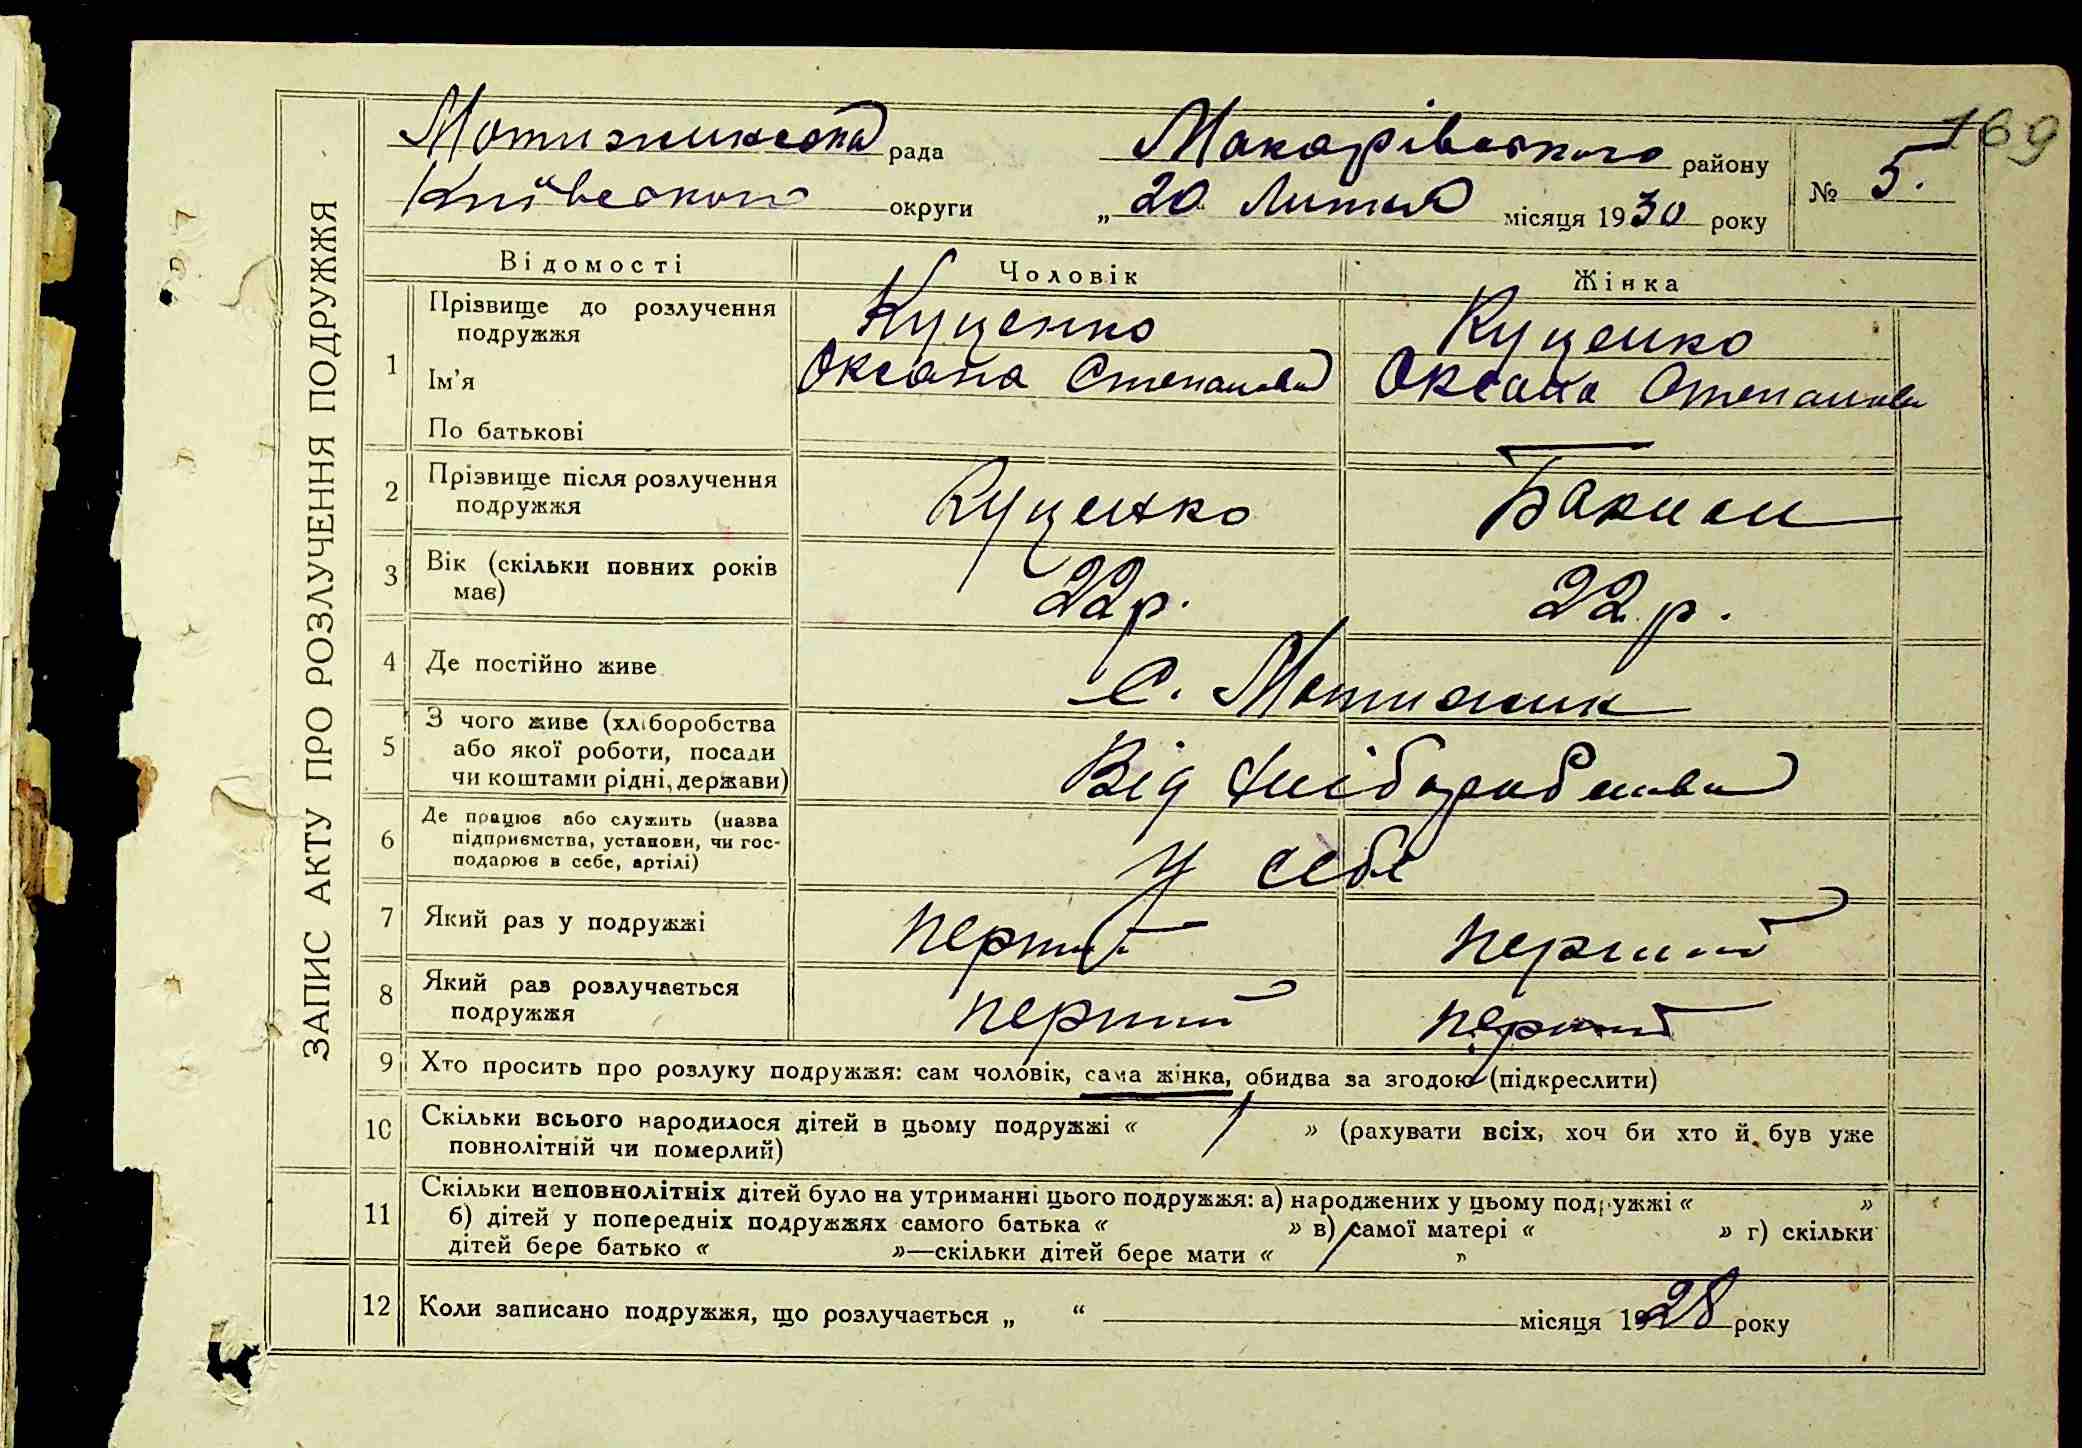 169
ЗАПИС АКТУ ПРО РОЗЛУЧЕННЯ ПОДРУЖЖЯ
Мотижинська рада Макарівського району
Київського округи „ 20 Лютого місяця 1930 року № 5.
Відомості Чоловік Жінка
1 Прізвище до розлучення подружжя Куценко Куценко
Ім’я Оксана Степанова Оксана Степанова
По батькові
2 Прізвище після розлучення подружжя Куценко
3 Вік (скільки повних років має) 22 р. 22 р.
4 Де постійно живе с. Мотижин
5 З чого живе (хліборобства або якої роботи, посади чи коштами рідні, держави) Від хліборобства
6 Де працює або служить (назва підприємства, установи, чи гос-
подарює в себе, артілі) у себе
7 Який раз у подружжі перший перший
8 Який раз розлучається подружжя перший перший
9 Хто просить про розлуку подружжя: сам чоловік, сама жінка, обидва за згодою (підкреслити)
10 Скільки всього народилося дітей в цьому подружжі « / » (рахувати всіх, хоч би хто й був уже
повнолітній чи померлий)
11 Скільки неповнолітніх дітей було на утриманні цього подружжя: а) народжених у цьому подружжі « »
б) дітей у попередніх подружжях самого батька « » в) самої матері « » г) скільки
дітей бере батько « »—скільки дітей бере мати « / "
12 Коли записано подружжя, що розлучається „ “ місяця 1928 року